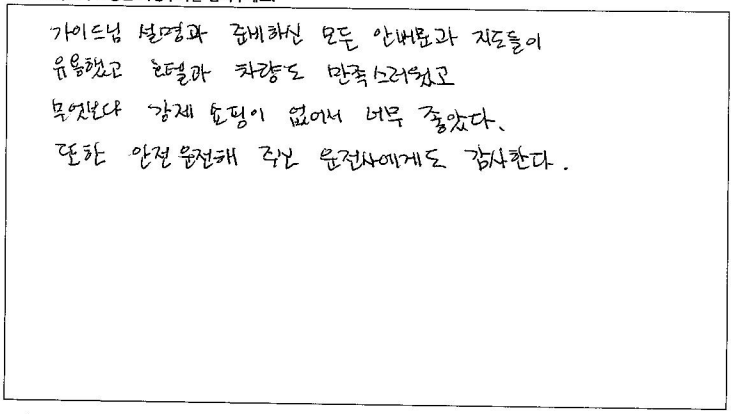 가이드님 설명과 준비하신 모든 안내문과 지도들이
유용했고 호텔과 차량도 만족스러웠고
무엇보다 강제 쇼핑이 없어서 너무 좋았다.
또한 안전운전해 주신 운전사에게도 감사한다.